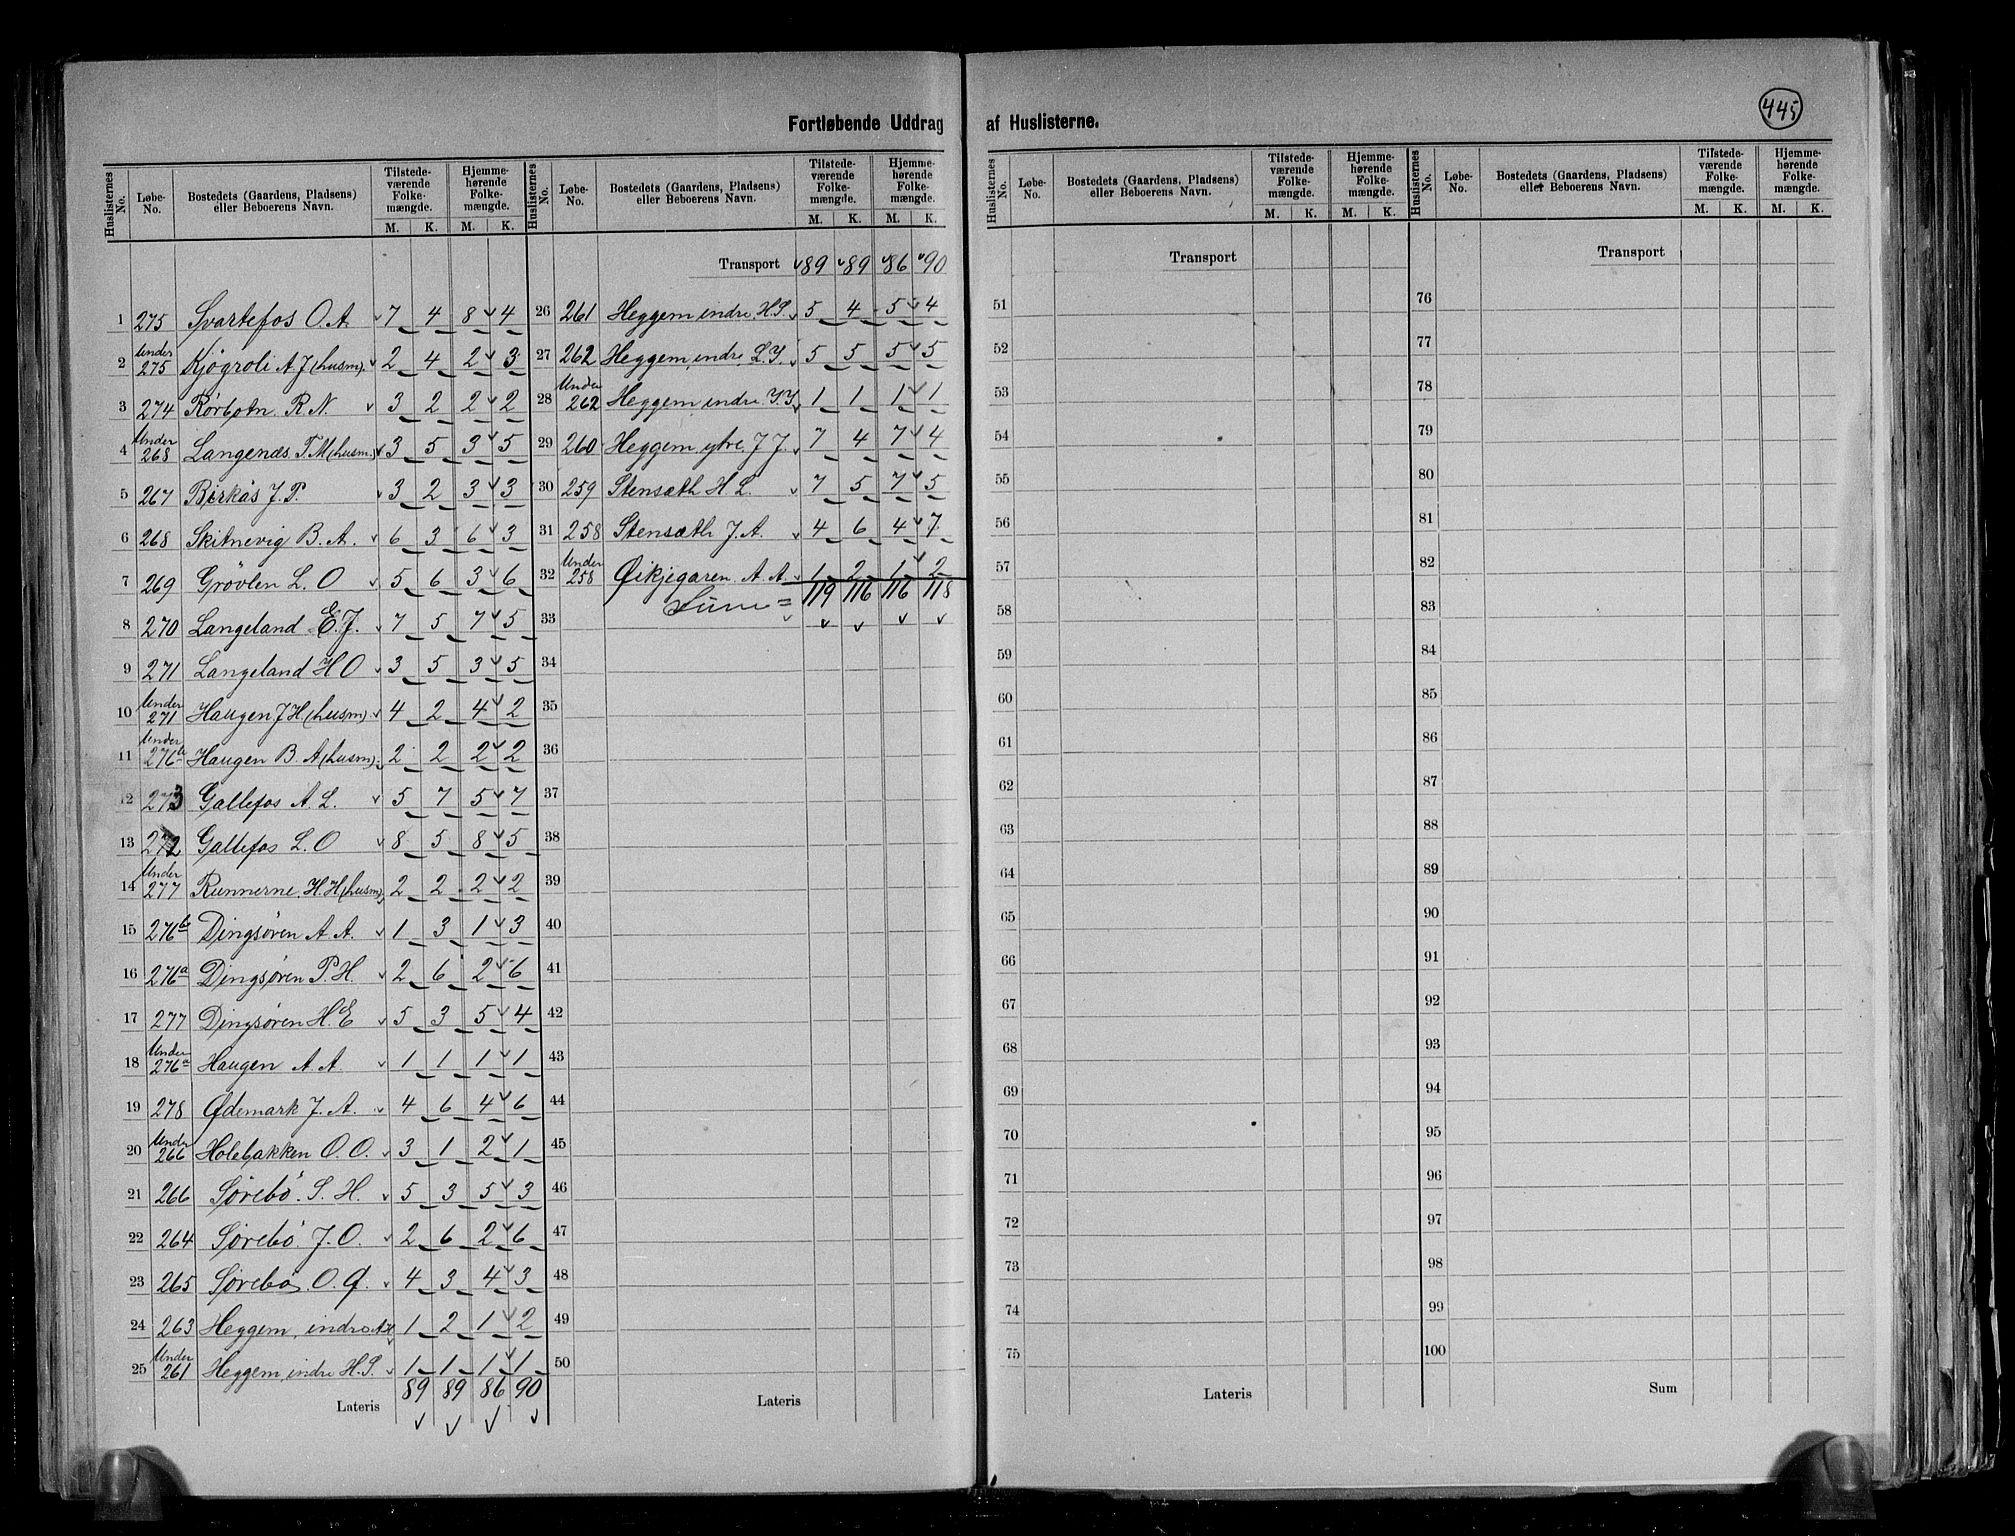 445
Fortløbende Uddrag af Huslisterne.
Huslisternes No. Løbe-No. Bostedets (Gaardens, Pladsens) eller Beboerens Navn. Tilstede-værende Folke-mængde. M. K. Hjemme-hørende Folke-mængde. M. K.
1 275 Svartefos O. A. 7 4 8 4
2 Under 275 Kjøgroli A. J (husm). 2 4 2 3
3 274 Rørbotn R. N. 3 2 2 2
4 Under 268 Langenæs T. M (husm.) 3 5 3 5
5 267 Birkås J. P. 3 2 3 3
6 268 Skitnevig B. A. 6 3 6 3
7 269 Grövlen L. O 5 6 3 6
8 270 Langeland E. J. 7 5 7 5
9 271 Langeland H O 3 5 3 5
10 Under 271 Haugen J H (husm) 4 2 4 2
11 Under 276b Haugen B. A (husm). 2 2 2 2
12 273 Gallefos A. L. 5 7 5 7
13 272 Gallefos L. O 8 5 8 5
14 Under 277 Runnerne. H. H (husm) 2 2 2 2
15 276b Dingsøren A A. 1 3 1 3
16 276a Dingsøren P. H. 2 6 2 6
17 277 Dingsøren H. E 5 3 5 4
18 Under 276a Haugen A A. 1 1 1 1
19 278 Ødemark J. A. 4 6 4 6
20 Under 266 Holebakken O. O. 3 1 2 1
21 266 Sørebö. S. H. 5 3 5 3
22 264 Sørebö J. O. 2 6 2 6
23 265 Sørebö O. 4 3 4 3
24 263 Heggem, indre 1 2 1 2
25 Under 261 Heggem, indre H. S. 1 1 1 1
Lateris 89 89 86 90
Huslisternes No. Løbe-No. Bostedets (Gaardens, Pladsens) eller Beboerens Navn. Tilstede-værende Folke-mængde. M. K. Hjemme-hørende Folke-mængde. M. K.
Transport 89 89 86 90
26 261 Heggem, indre. H. S. 5 4 5 4
27 262 Heggem, indre, 5 5 5 5
28 Under 262 Heggem, indre. 1 1 1 1
29 260 Heggem, ytre, J J. 7 4 7 4
30 259 Stensæth H. L. 7 5 7 5
31 258 Stensæth J. A. 4 6 4 7
32 Under 258 Øikjegaren. A. A. 1 2 1 2
33 119 116 116 118
34
35
36
37
38
39
40
41
42
43
44
45
46
47
48
49
50
Lateris
Huslisternes No. Løbe-No. Bostedets (Gaardens, Pladsens) eller Beboerens Navn. Tilstede-værende Folke-mængde. M. K. Hjemme-hørende Folke-mængde. M. K.
Transport
51
52
53
54
55
56
57
58
59
60
61
62
63
64
65
66
67
68
69
70
71
72
73
74
75
Lateris
Huslisternes No. Løbe-No. Bostedets (Gaardens, Pladsens) eller Beboerens Navn. Tilstede-værende Folke-mængde. M. K. Hjemme-hørende Folke-mængde. M. K.
Transport
76
77
78
79
80
81
82
83
84
85
86
87
88
89
90
91
92
93
94
95
96
97
98
99
100
Sum